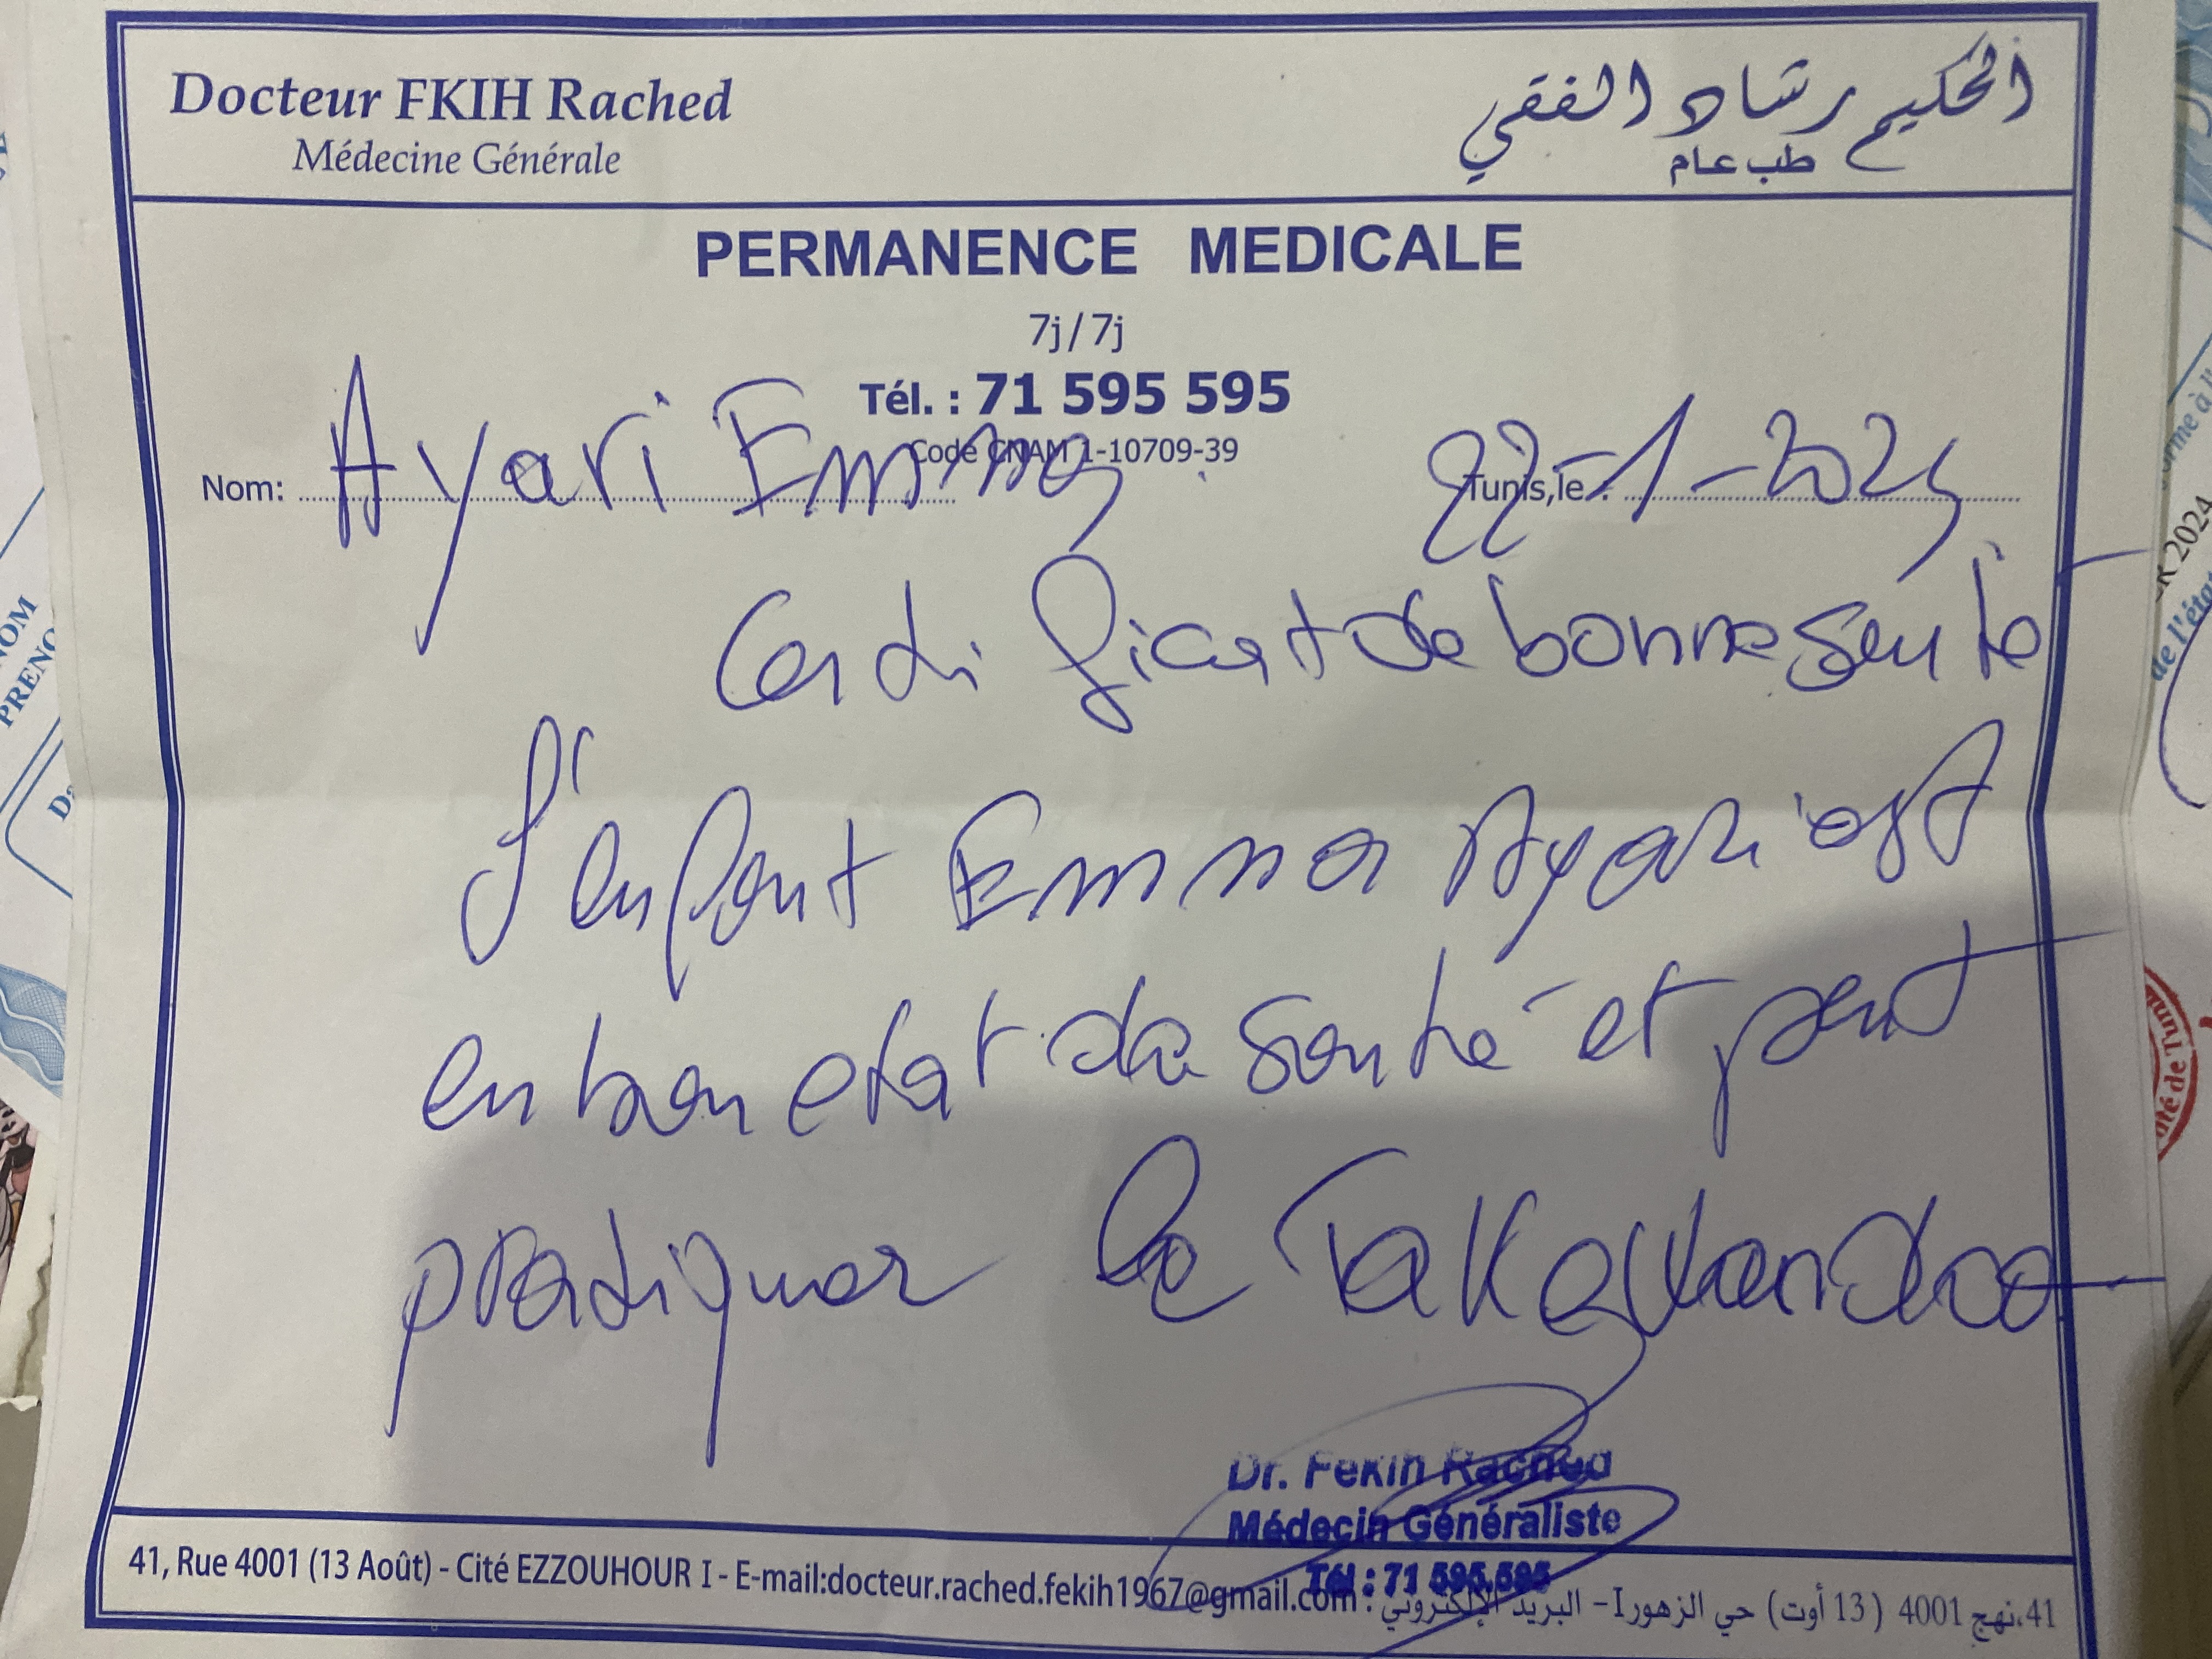 Docteur FKIH Rached
Médecine Générale
الحكيم رشاد الفقي
طب عام
PERMANENCE MEDICALE
7j/7j
Tél. : 71 595 595
Code CNAM 1-10709-39
Nom: Ayari Emna
Tunis,le : 22-1-2025
Certificat de bonne santé
L'enfant Emna Ayari est
en bon etat de santé et peut
pratiquer le Takewando
Dr. Fekih Rached
Médecin Généraliste
Tél : 71 595.595
41, Rue 4001 (13 Août) - Cité EZZOUHOUR I - E-mail:docteur.rached.fekih1967@gmail.com : البريد الإلكتروني -I حي الزهور (13 أوت) 4001 نهج ،41
NOM
PRENO
2024
de l'éta